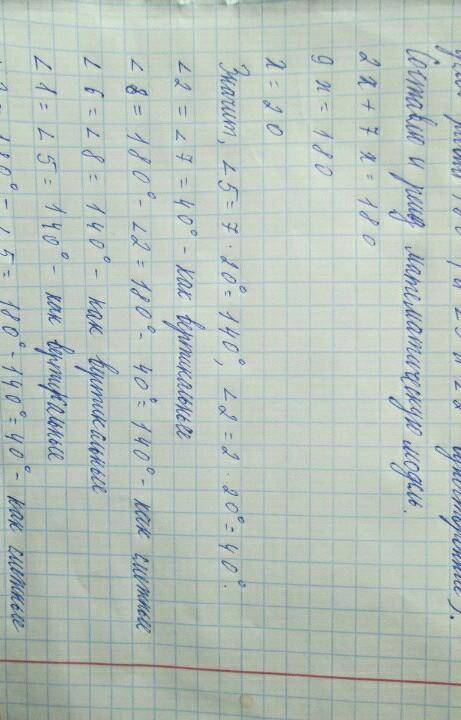 180° , а ∠5 и ∠2
Составлю и решу математическую модель.
2x + 7x = 180
9x = 180
x = 20
Значит, ∠5 = 7 · 20° = 140°, ∠2 = 2 · 20° = 40°.
∠2 = ∠7 = 40° - как вертикальные
∠8 = 180° - ∠2 = 180° - 40° = 140° - как смежные
∠6 = ∠8 = 140° - как вертикальные
∠1 = ∠5 = 140° - как вертикальные
180° - ∠5 = 180° - 140° = 40° - как смежные